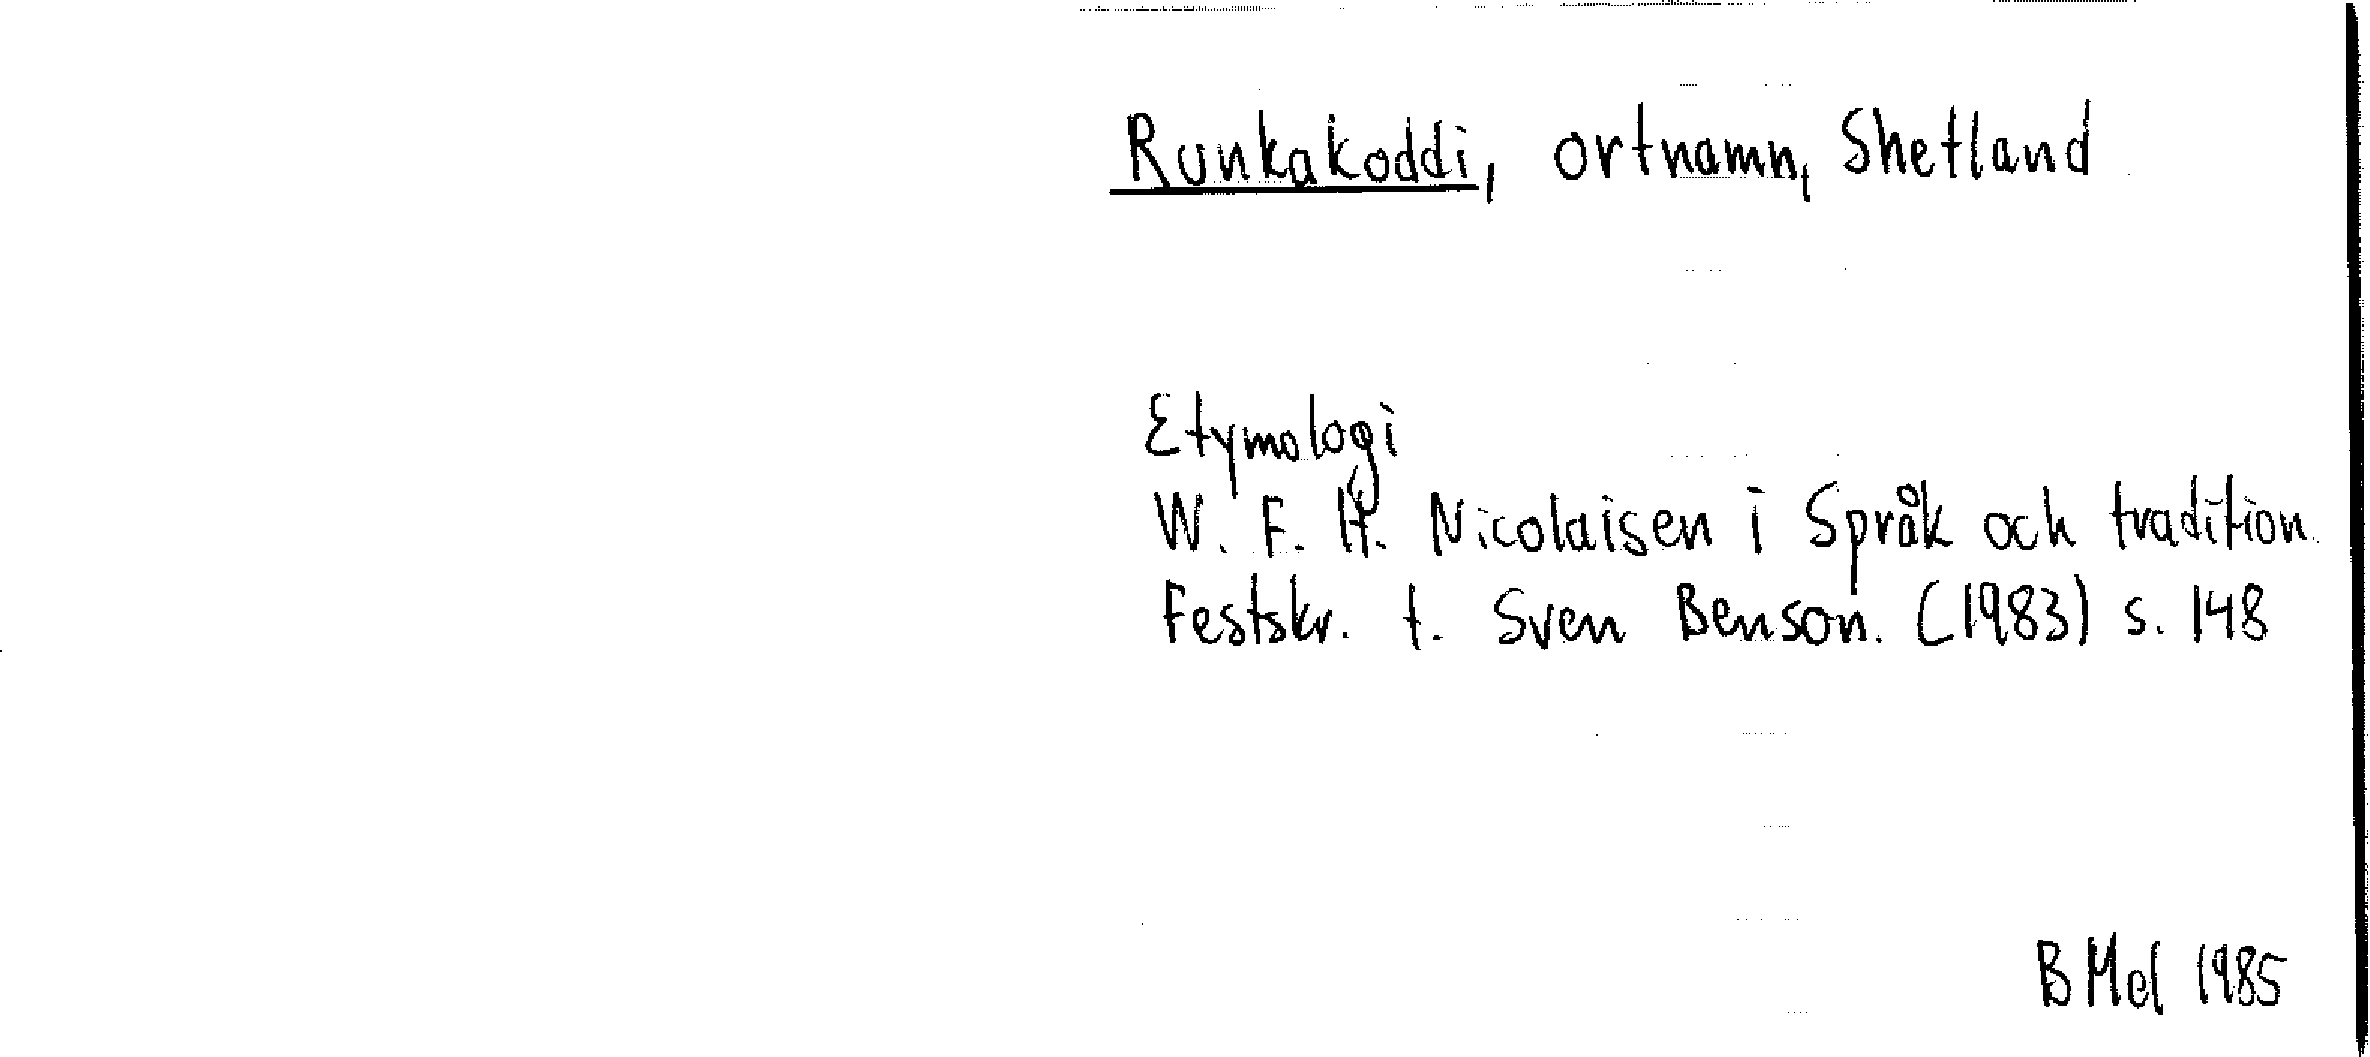 Runkakoddi, ortnamn, Shetland
Etymologi
W. F. H. Nicolaisen i Språk och tradition.
Festskr. t. Sven Benson. (1983) s. 148
B Mel 1985